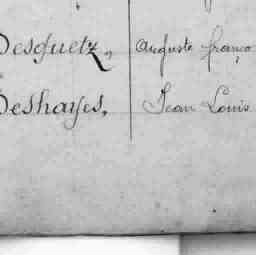 Desquetz, Auguste franço
Deshayes, Jean Louis